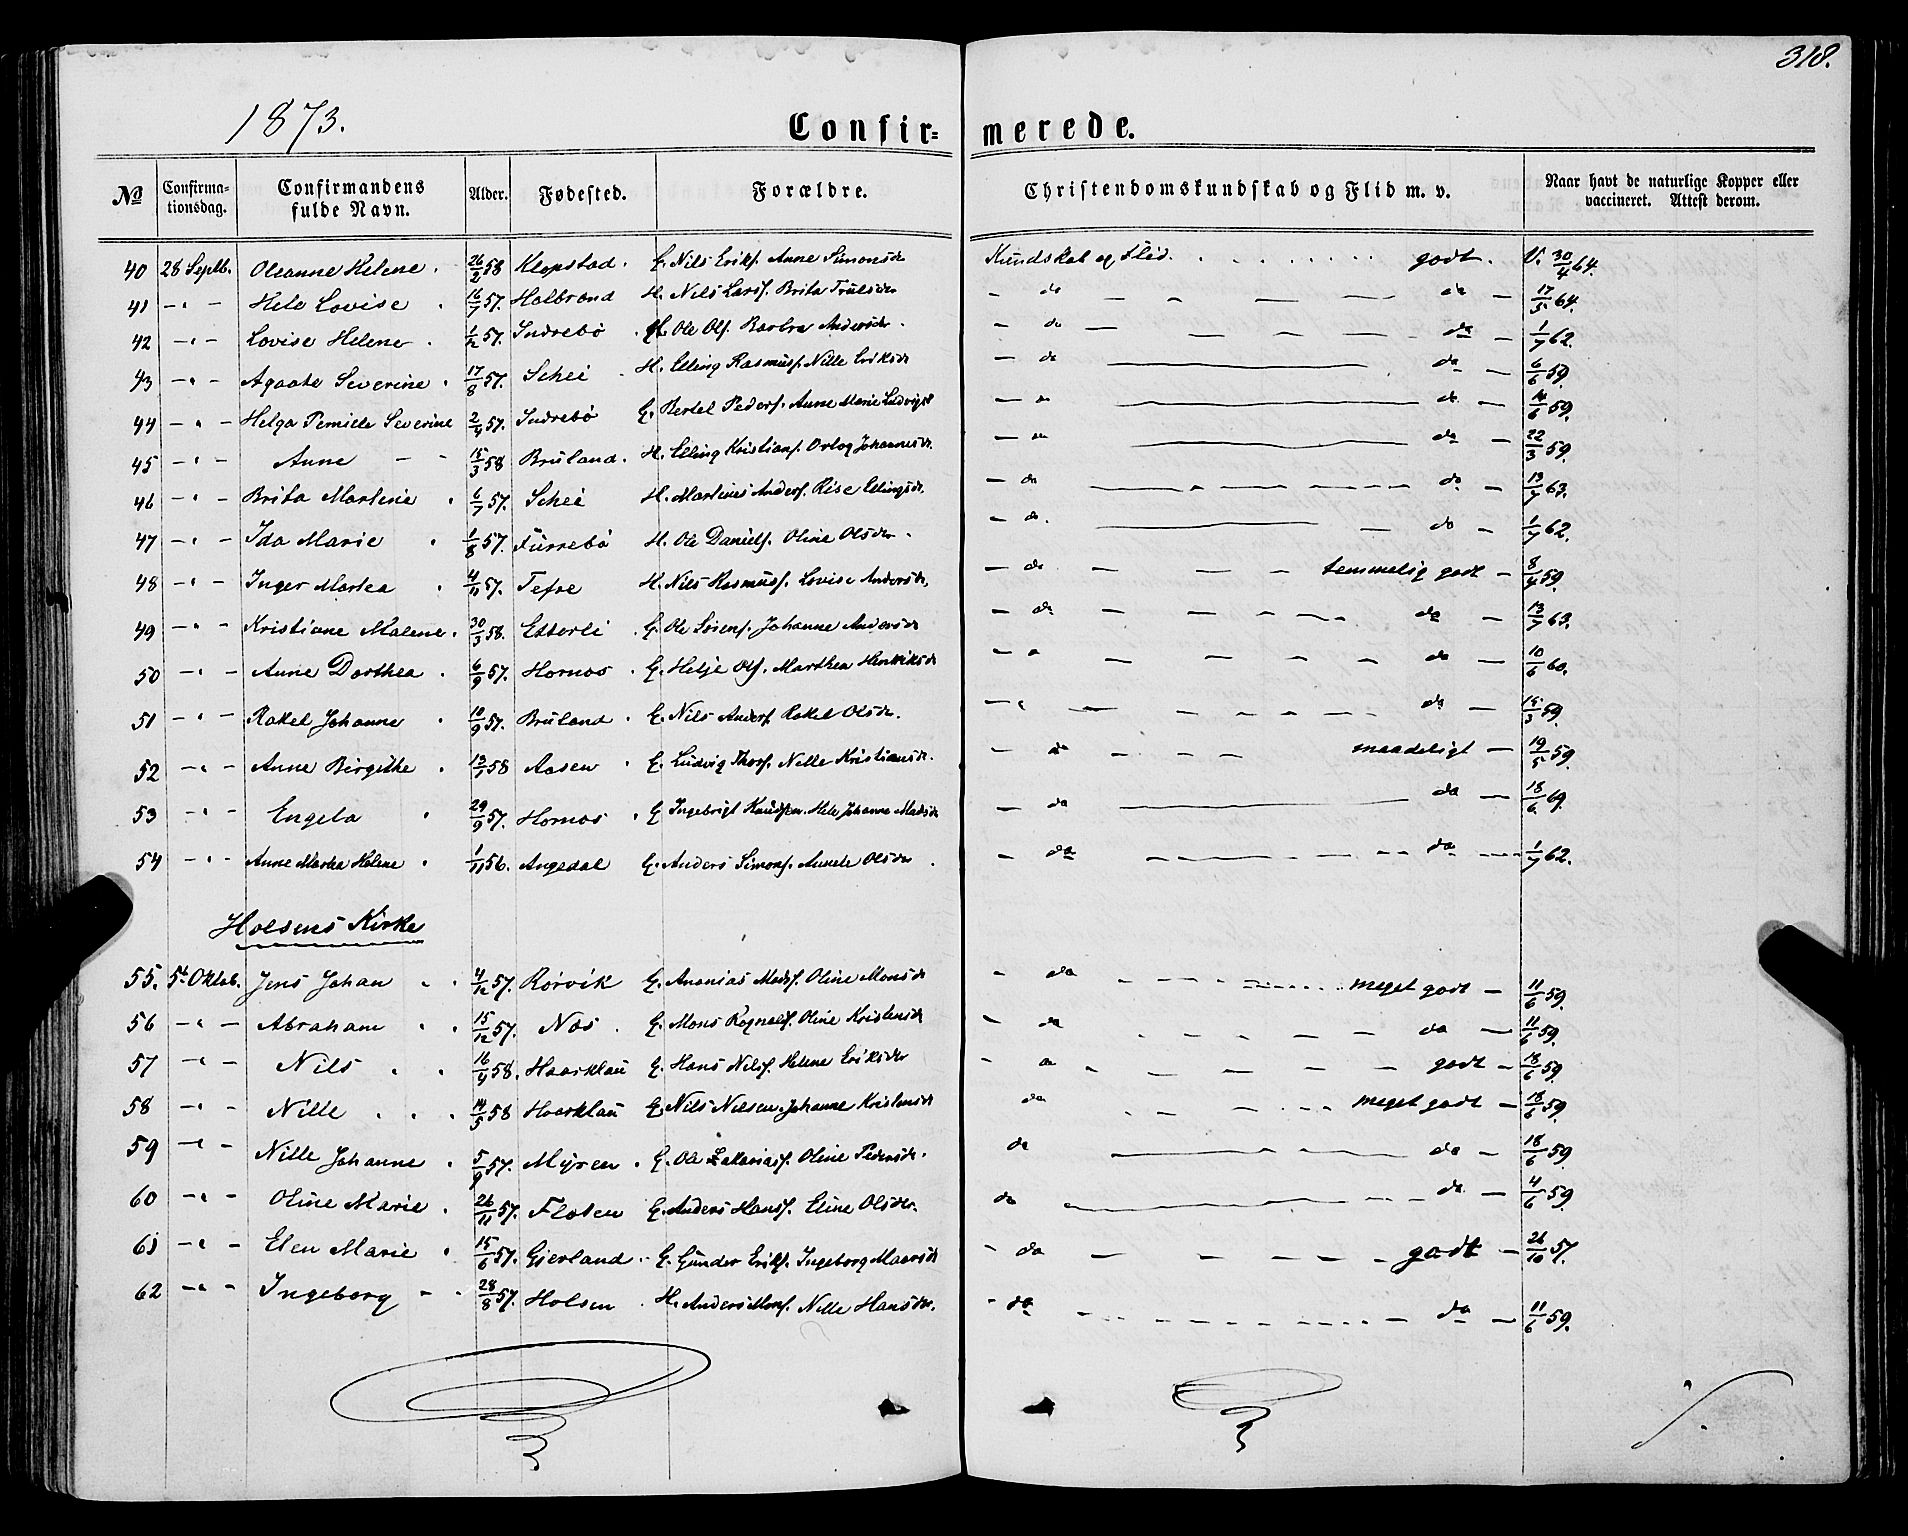 318.
1873.
Confir= merede.
No Confirma-tionsdag. Confirmandens fulde Navn. Alder. Fødested. Forældre. Christendomskundskab og Flid m. v. Naar havt de naturlige Kopper eller vaccineret. Attest derom.
40 28 Septb. Oleanne Helene. 26/2 58 Klopstad. G. Nils Eriks. Anne Simonsdr Kundskab og Flid. godt. V. 30/4 64.
41 - " - Hele Lovise 16/7 57. Halbrend H. Nils Lars. Brita Trulsdr - do - do - 17/5 64.
42 - " - Lovise Helene 1/12 57. Indrebø H. Ole Ols. Barbra Andersdr. - do - do - 1/7 62.
43 - " - Agaate Severine 17/8 57. Schei H. Elling Rasmus. Nille Eriksdr - do - do - 6/6 59.
44 - " - Helga Pernille Severine 2/9 57. Indrebø G. Bertel Peders. Anne Marie Ludvigsd - do - do - 14/6 59.
45 - " - Anne - - 15/3 58 Bruland. H. Elling Kristians. Orlog Johannesdr. - do - do - 22/3 59.
46 - " - Brita Martine 6/7 57. Schei H. Martines Anders. Lise Ellingsdr. - do - do - 13/7 63.
47 - " - Ida Marie 1/8 57. Furrebø H. Ole Daniels. Oline Olsdr. - do. - do - 1/7 62.
48 - " - Inger Martea 4/11 57. Tefre H. Nils Rasmus. Lovise Andersdr. - do - temmelig godt - 8/4 59.
49 - " - Kristiane Malene. 30/3 58. Etterli G. Ole Sørens. Johanne Andersdr - do - do - 13/7 63.
50 - " - Anne Dorthea 6/9 57. Hornos G. Helje Ols. Marthea Henriksdr - " - do - 10/6 60.
51 - " - Rakel Johanne 10/9 57. Bruland G. Nils Anders. Rakel Olsdr. - " - do - 15/3 59.
52 - " - Anne Birgithe 13/1 58 Aasen G. Ludvig Thors. Nille Kristiansdr. - do - maadeligt - 19/5 59.
53 - " - Engela 29/9 57. Hornos G Ingebrigt Knudsen. Hele Johanne Madsdr - do - do - 18/6 69.
54 - " - Anne Martea Helene 1/11 56. Angedal G. Anders Simons. Annele Olsdr - do - do - 1/7 62.
Holsens Kirke
55. 5t Oktob. Jens Johan 4/12 57. Rørvik G. Ananias Mads. Oline Monsdr - do - meget godt - 11/6 59.
56 - " - Abraham 15/12 57. Nos. G. Mons Rognald. Oline Kristensdr - do - do - 11/6 59.
57 - " - Nils 16/4 58. Haarklau G. Hans Nils. Helene Eriksdr - do - godt - 18/6 59.
58 - " - Nille 14/5 58 Haarklau G. Nils Nilsen. Johanne Kristensdr do - meget godt - 18/6 59.
59 - " - Nille Johanne 5/9 57. Myren. G. Ole Zakarias. Oline Pedersdr. do - do - 18/6 59
60 - " - Oline Marie. 26/11 57. Floten G. Anders Hans. Eline Olsdr. do - do - 4/6 59
61 - " - Elen Marie 15/6 57. Gjerland. G. Gunder Eriks. Ingeborg Maarsdr - do - godt - 26/10 57.
62 - " - Ingeborg - 28/8 57. Holsen H. Anders Mons. Nille Hansdr. - do - do - 11/6 59.